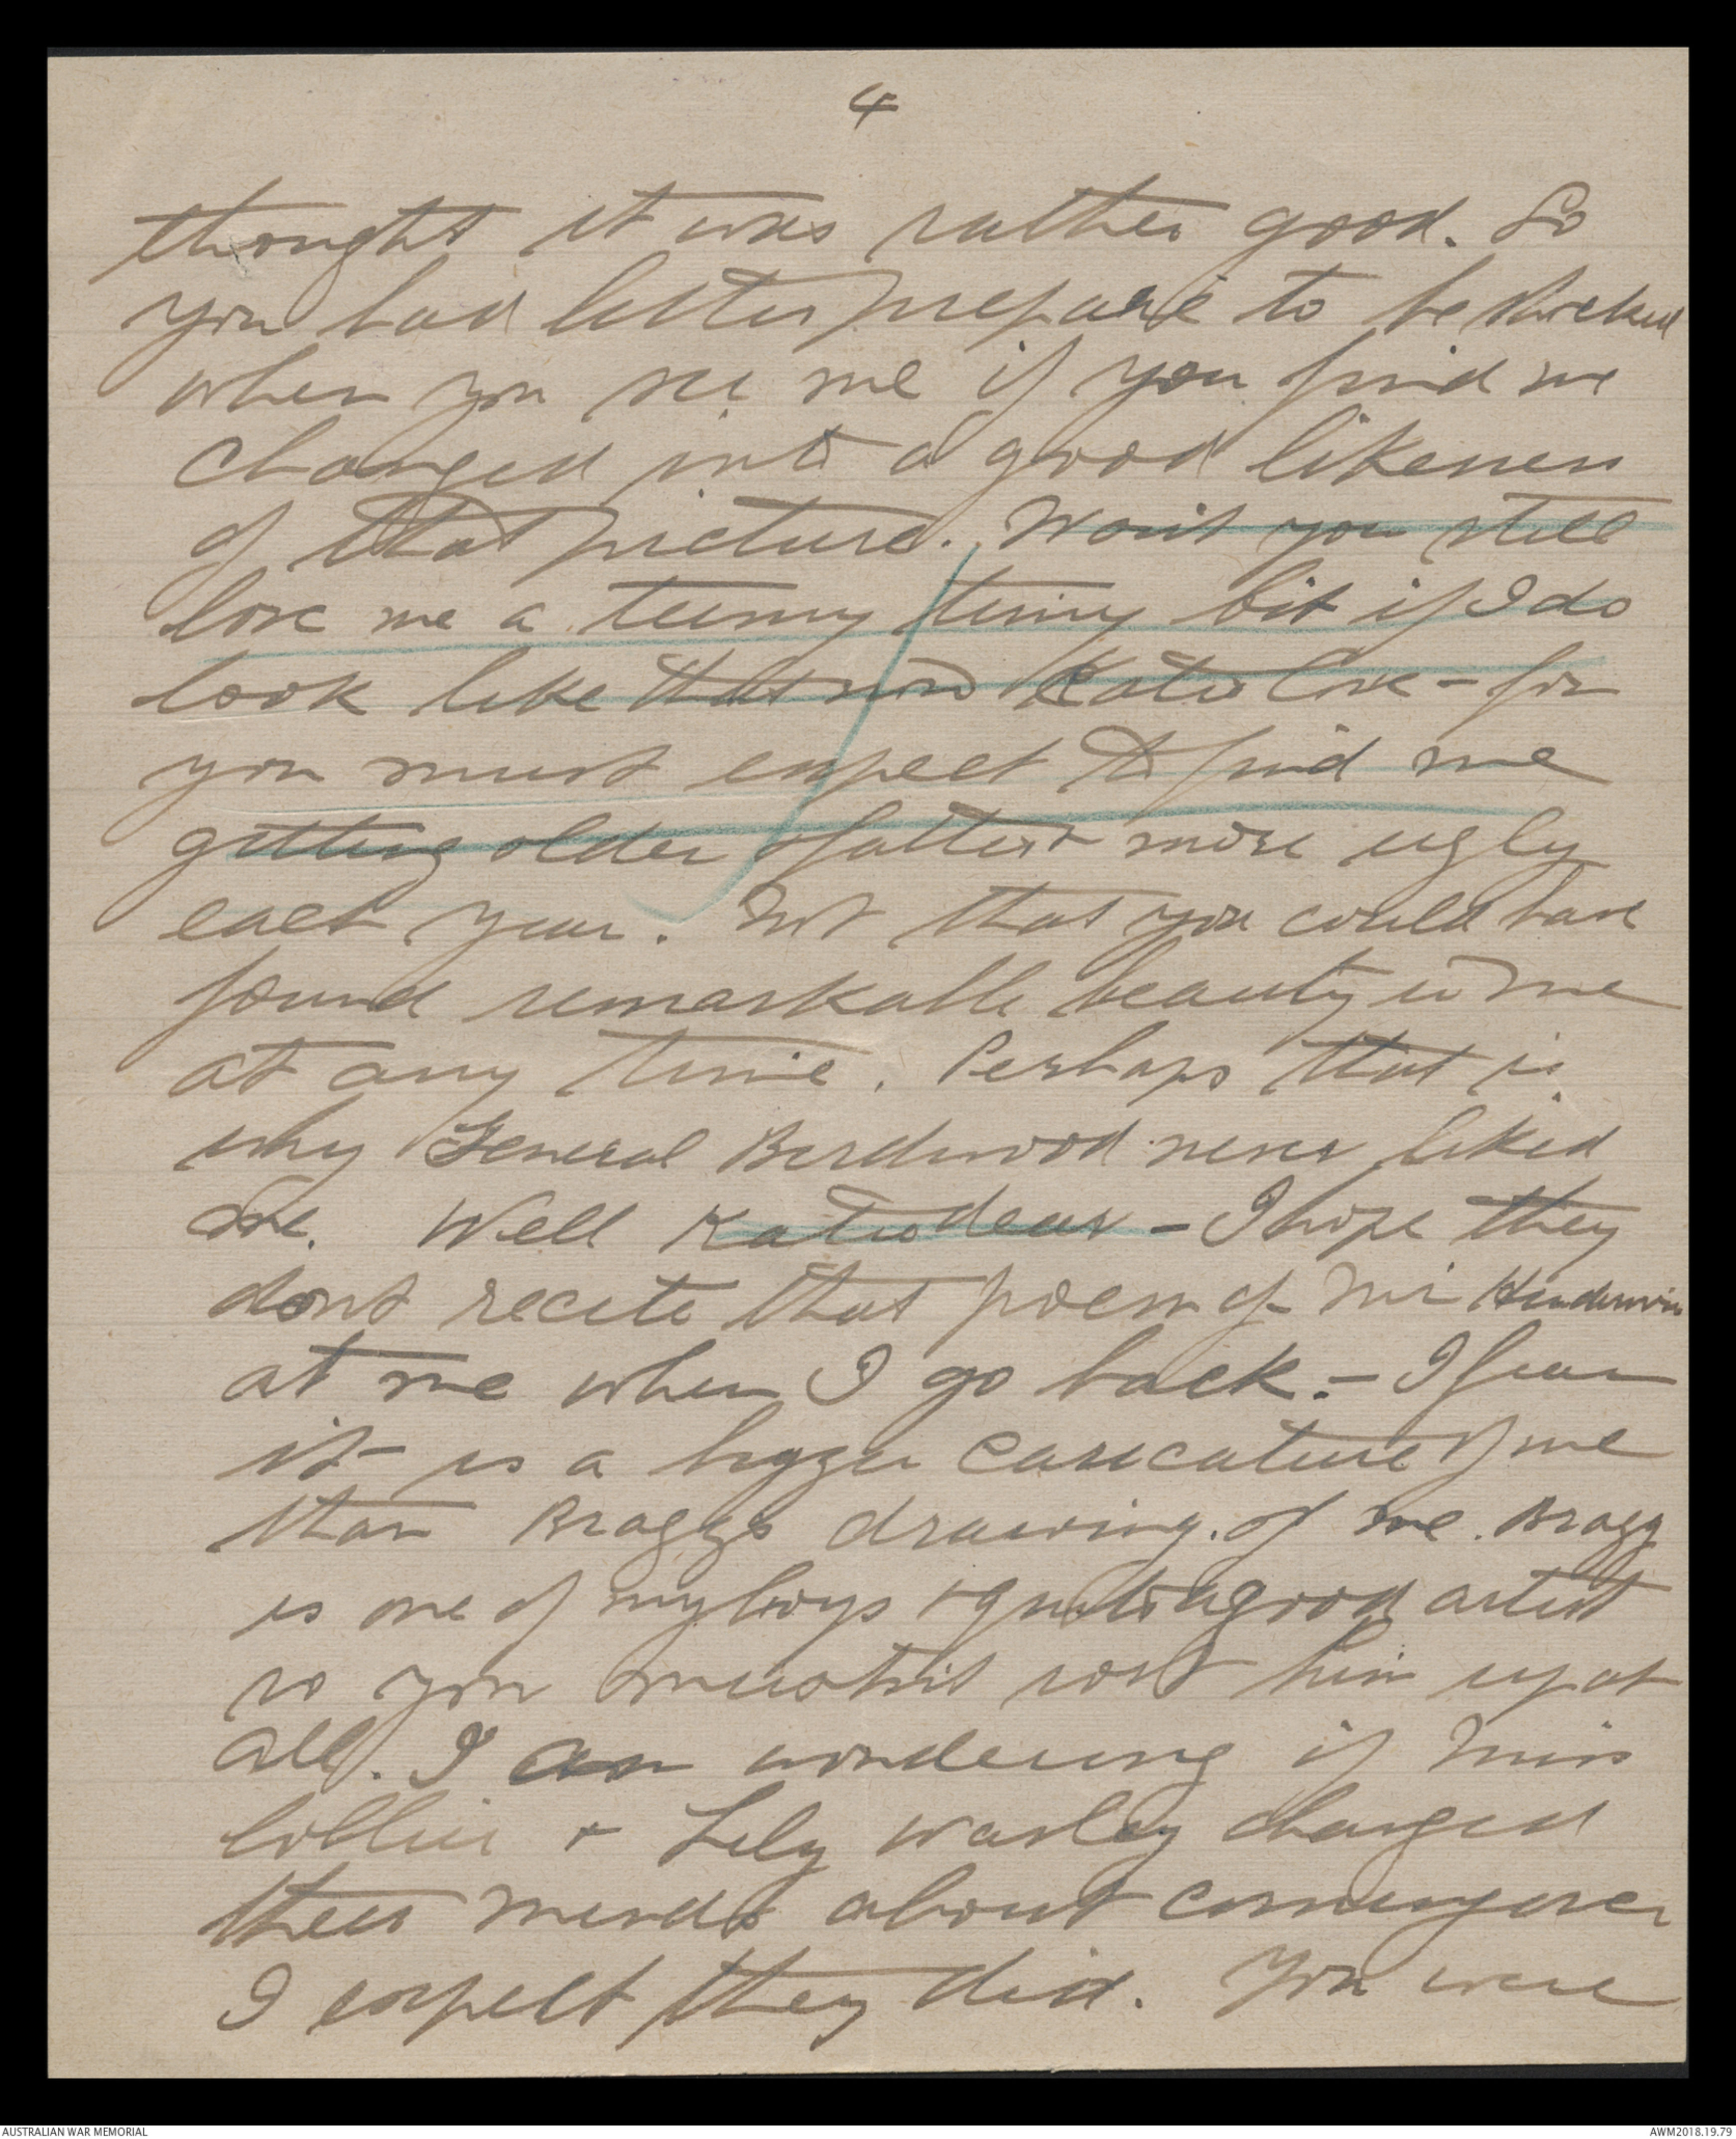 4
thought it was rather good. So
you had better prepare to be shocked
when you see me if you find me
changed into a good likeness
of that picture. Won't you still
love me a teensy teeny bit if I do
look like that now Katie love - for
you must expect to find me
getting older fatter & more ugly
each year. Not that you could have
found remarkable beauty in me
at any time. Perhaps that is
why General Birdwood never liked
me. Well Katie dear - I hope they
dont recite that poem of Mr
at me when I go back. - I fear
it is a bigger caricature of me
than Braggs drawing of me. Bragg
is one of my boys & quite a good artist
so you mustnt him up at
all. I am wondering if Miss
Collier & Lily changed
their minds about coming over
I expect they did. You were
AUSTRALIAN WAR MEMORIAL
AWM2018.19.79